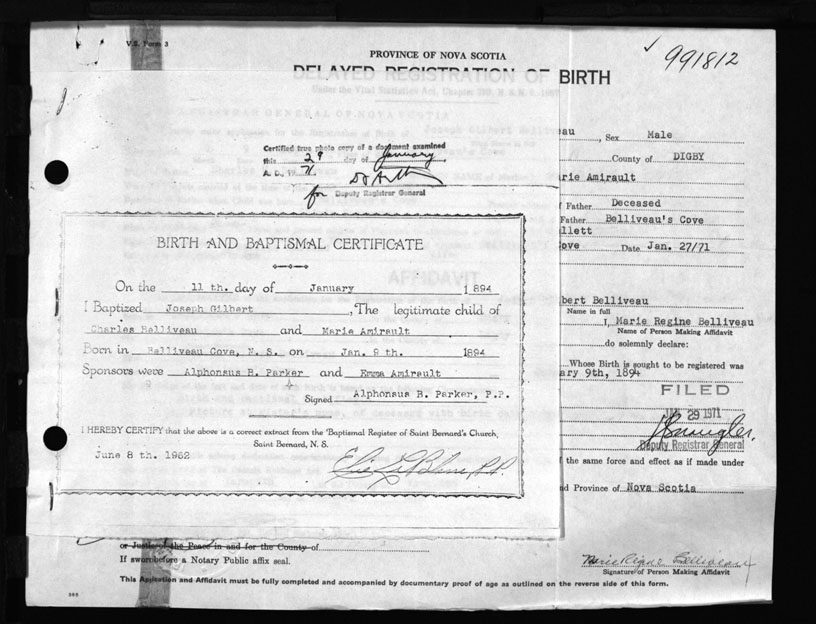 V.S. Form 3
PROVINCE OF NOVA SCOTIA
991812
DELAYED REGISTRATION OF BIRTH
Certified true photo copy of a document examined
this 29 day of January
A. D., 1971
for Deputy Registrar General
eau, Sex Male
County of DIGBY
rie Amirault
f Father Deceased
Father Belliveau's Cove
llett
ove Date Jan. 27/71
BIRTH AND BAPTISMAL CERTIFICATE
On the 11 th. day of January 1894
I Baptized Joseph Gilbert, The legitimate child of
Charles Belliveau and Marie Amirault
Born in Belliveau Cove, N. S. on Jan. 9 th. 1894
Sponsors were Alphonsus B. Parker and Emma Amirault
Signed Alphonsus B. Parker, P.P.
I HEREBY CERTIFY that the above is a correct extract from the Baptismal Register of Saint Bernard's Church,
Saint Bernard, N. S.
June 8 th. 1962
AFFIDAVIT
bert Belliveau
Name in full
I, Marie Regine Belliveau
Name of Person Making Affidavit
do solemnly declare:
Whose Birth is sought to be registered was
ary 9th, 1894
FILED
29 1971
Deputy Registrar General
f the same force and effect as if made under
nd Province of Nova Scotia
or Justice of the Peace in and for the County of
If sworn before a Notary Public affix seal.
Marie Regine Belliveau
Signature of Person Making Affidavit
This Application and Affidavit must be fully completed and accompanied by documentary proof of age as outlined on the reverse side of this form.